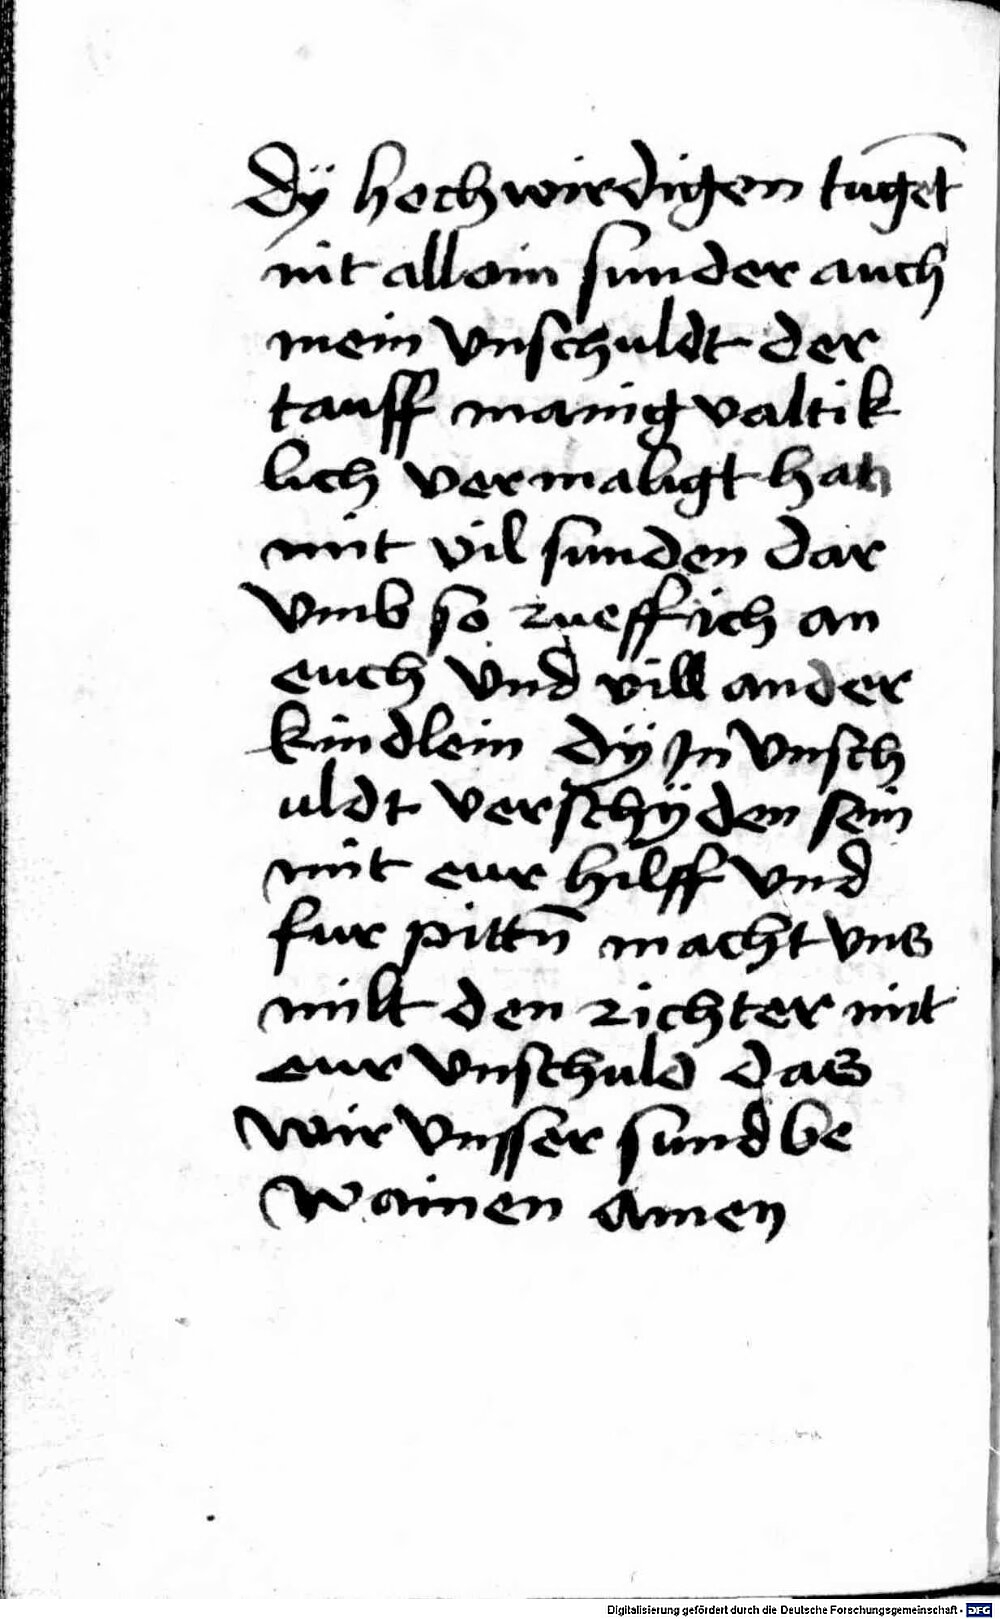 Dÿ hochwirdigen tuge͞t
nit allain sunder auch
mein vnschuldt der
tauff manig valtik
lich vermaligt hab
mit vil sunden dar
vmb so rueff ich an
euch vnd vill ander
kindlein dÿ Jn vnsch
uldt verschÿden sein
mit eur hilff vnd
fur pittn̄ macht vns
milt den richter mit
eur vnschuld das
wir vnsser sund be
wainen amen
Digitalisierung gefördert durch die Deutsche Forschungsgemeinschaft - DFG